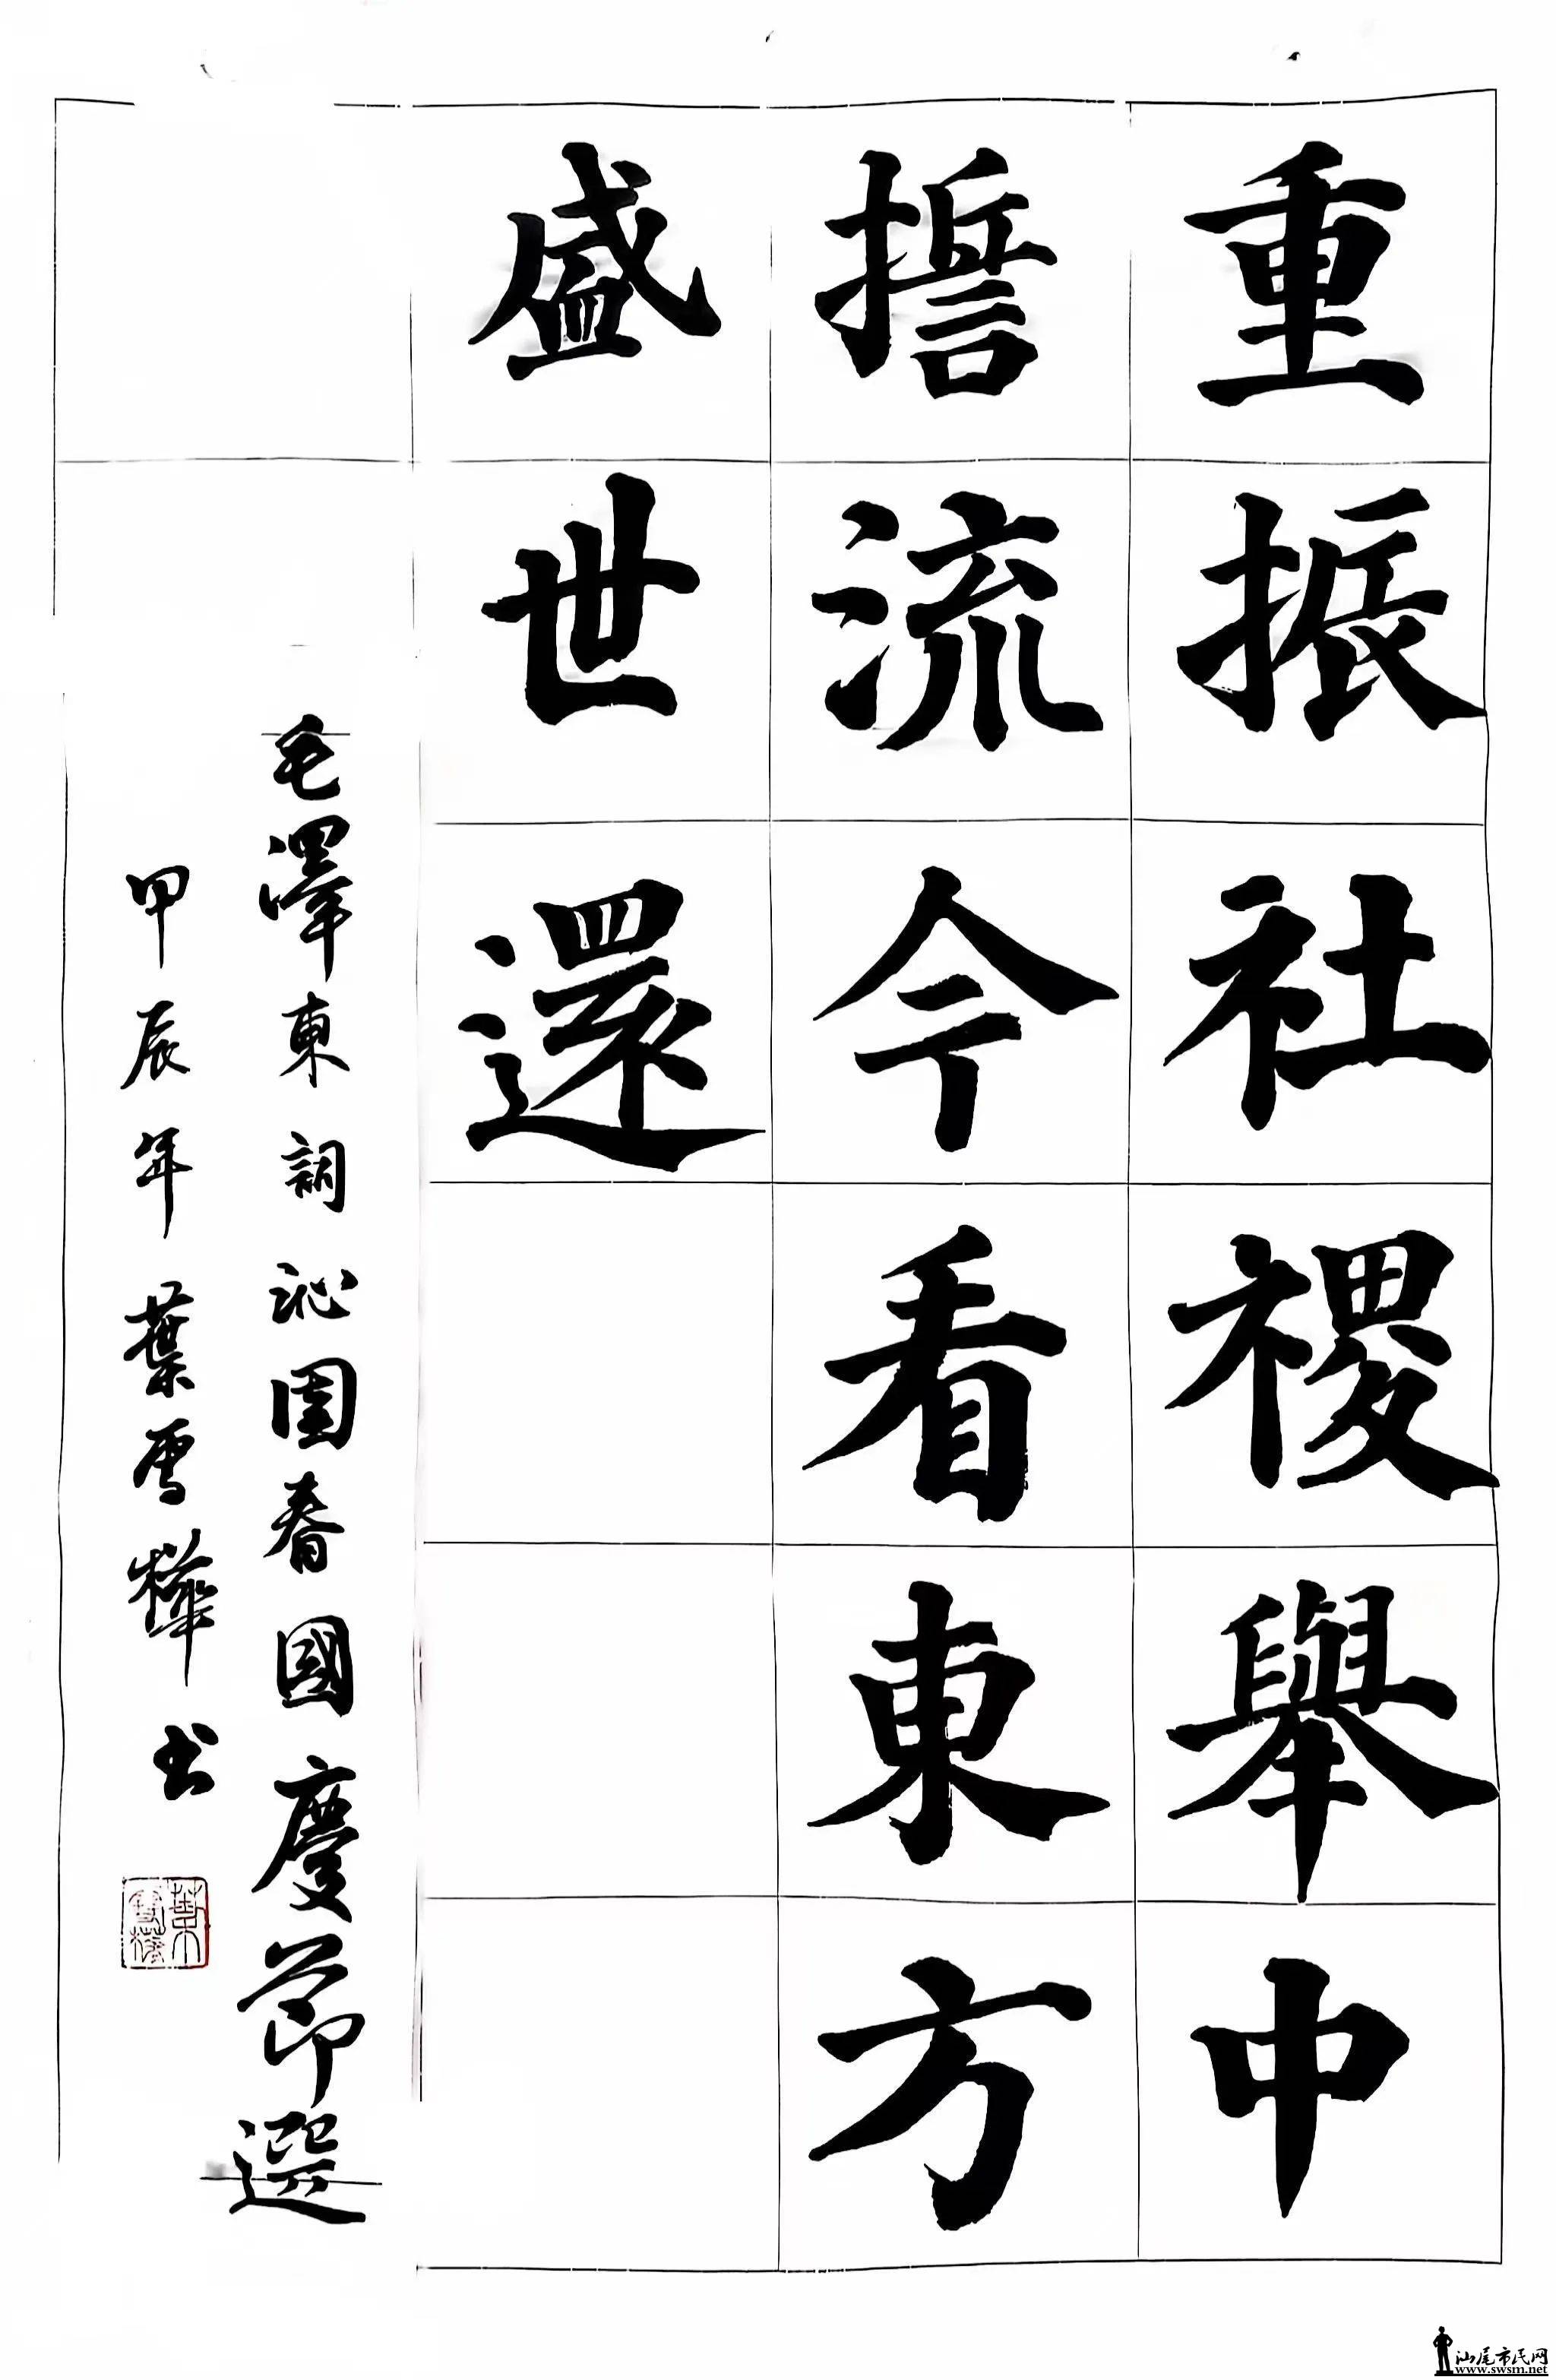 重振社禝舉中
流今看東方
盛世還
毛澤東詞沁園春國慶節選
甲辰年葉雪樺书
汕尾市民网
www.swsm.net